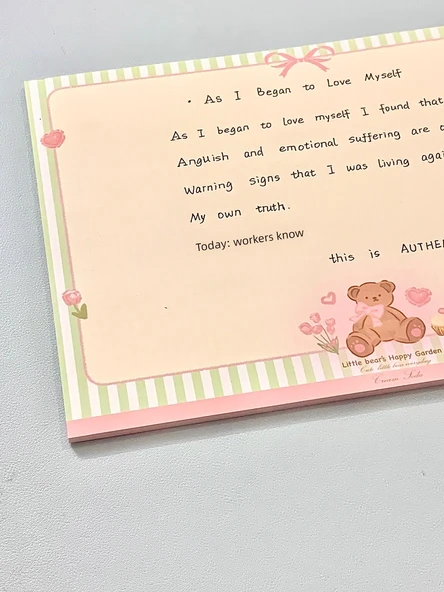 • As I Began to Love Myself
As I began to love myself I found that
Anguish and emotional suffering are
Warning signs that I was living
My own truth.
Today: workers know
this is
Little bear's Happy Garden
Cream Soda